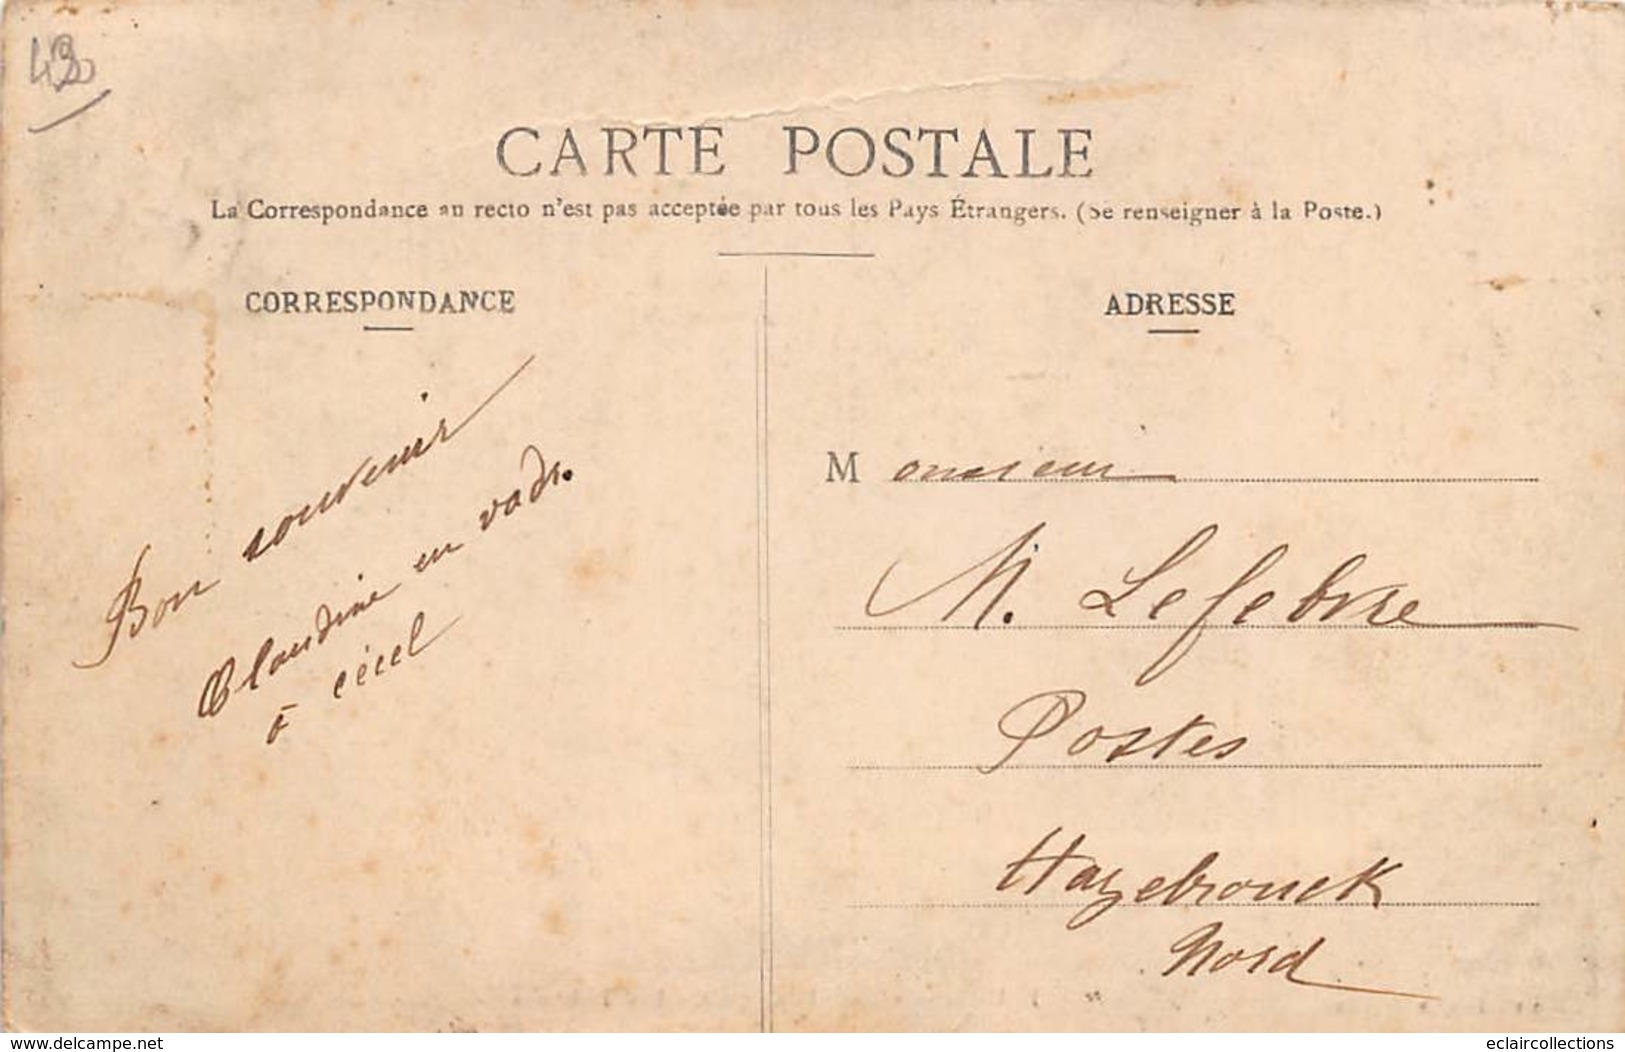 43
CARTE POSTALE
La Correspondance au recto n'est pas acceptée par tous les Pays Étrangers. (Se renseigner à la Poste.)
CORRESPONDANCE
Bon souvenir
Claudine en vads.
à cécel
ADRESSE
Monsieur
M. Lefebvre
Postes
Hazebrouck
Nord
www.delcampe.net
eclaircollections